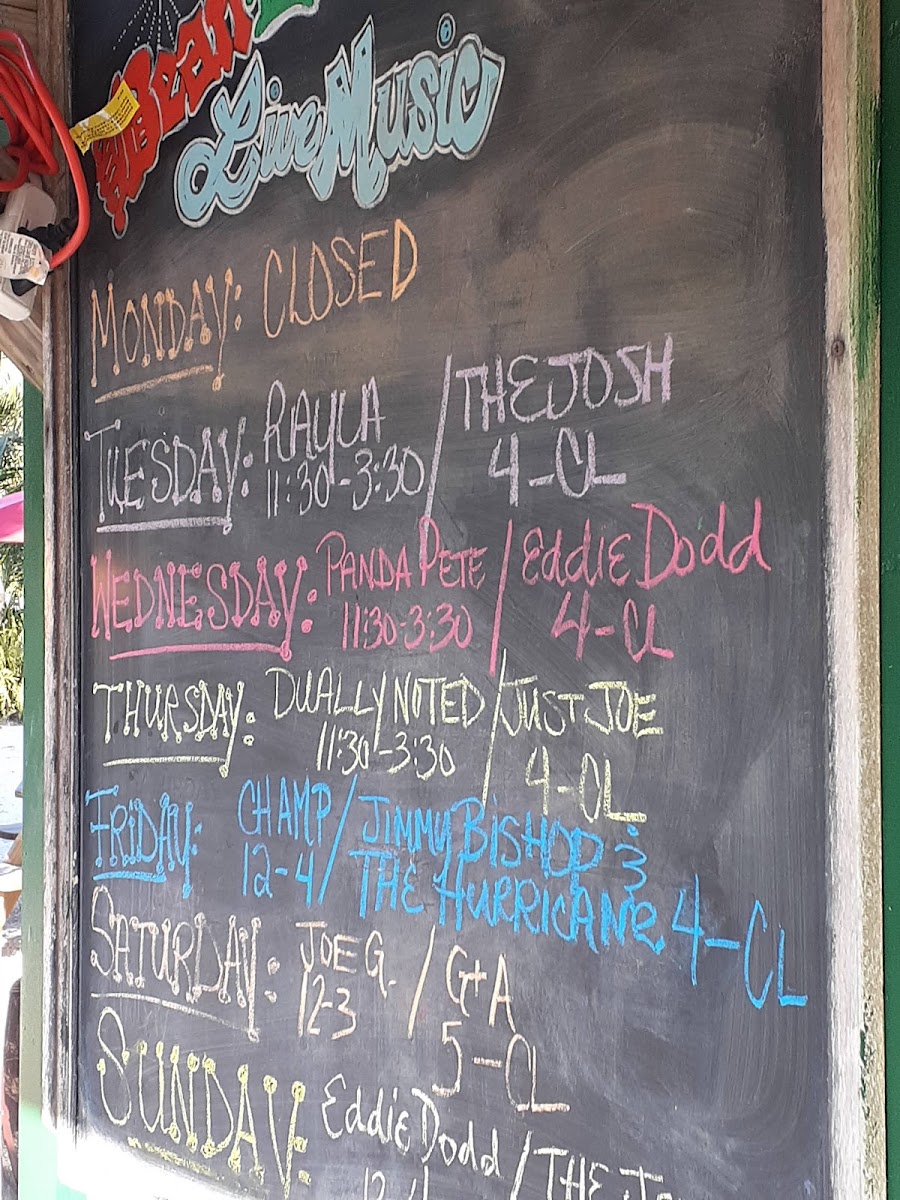 Live Music
MONDAY: CLOSED
TUESDAY: RAYLA / THE JOSH
11:30-3:30 4-CL
WEDNESDAY: PANDA PETE / Eddie Dodd
11:30-3:30 4-CL
THURSDAY: DUALLY NOTED / JUST JOE
11:30-3:30 4-CL
FRIDAY: CHAMP / JIMMY BISHOP &
12-4 THE HURRICANE 4-CL
SATURDAY: JOE G. / G+A
12-3 5-CL
SUNDAY: Eddie Dodd / THE JO
12-4